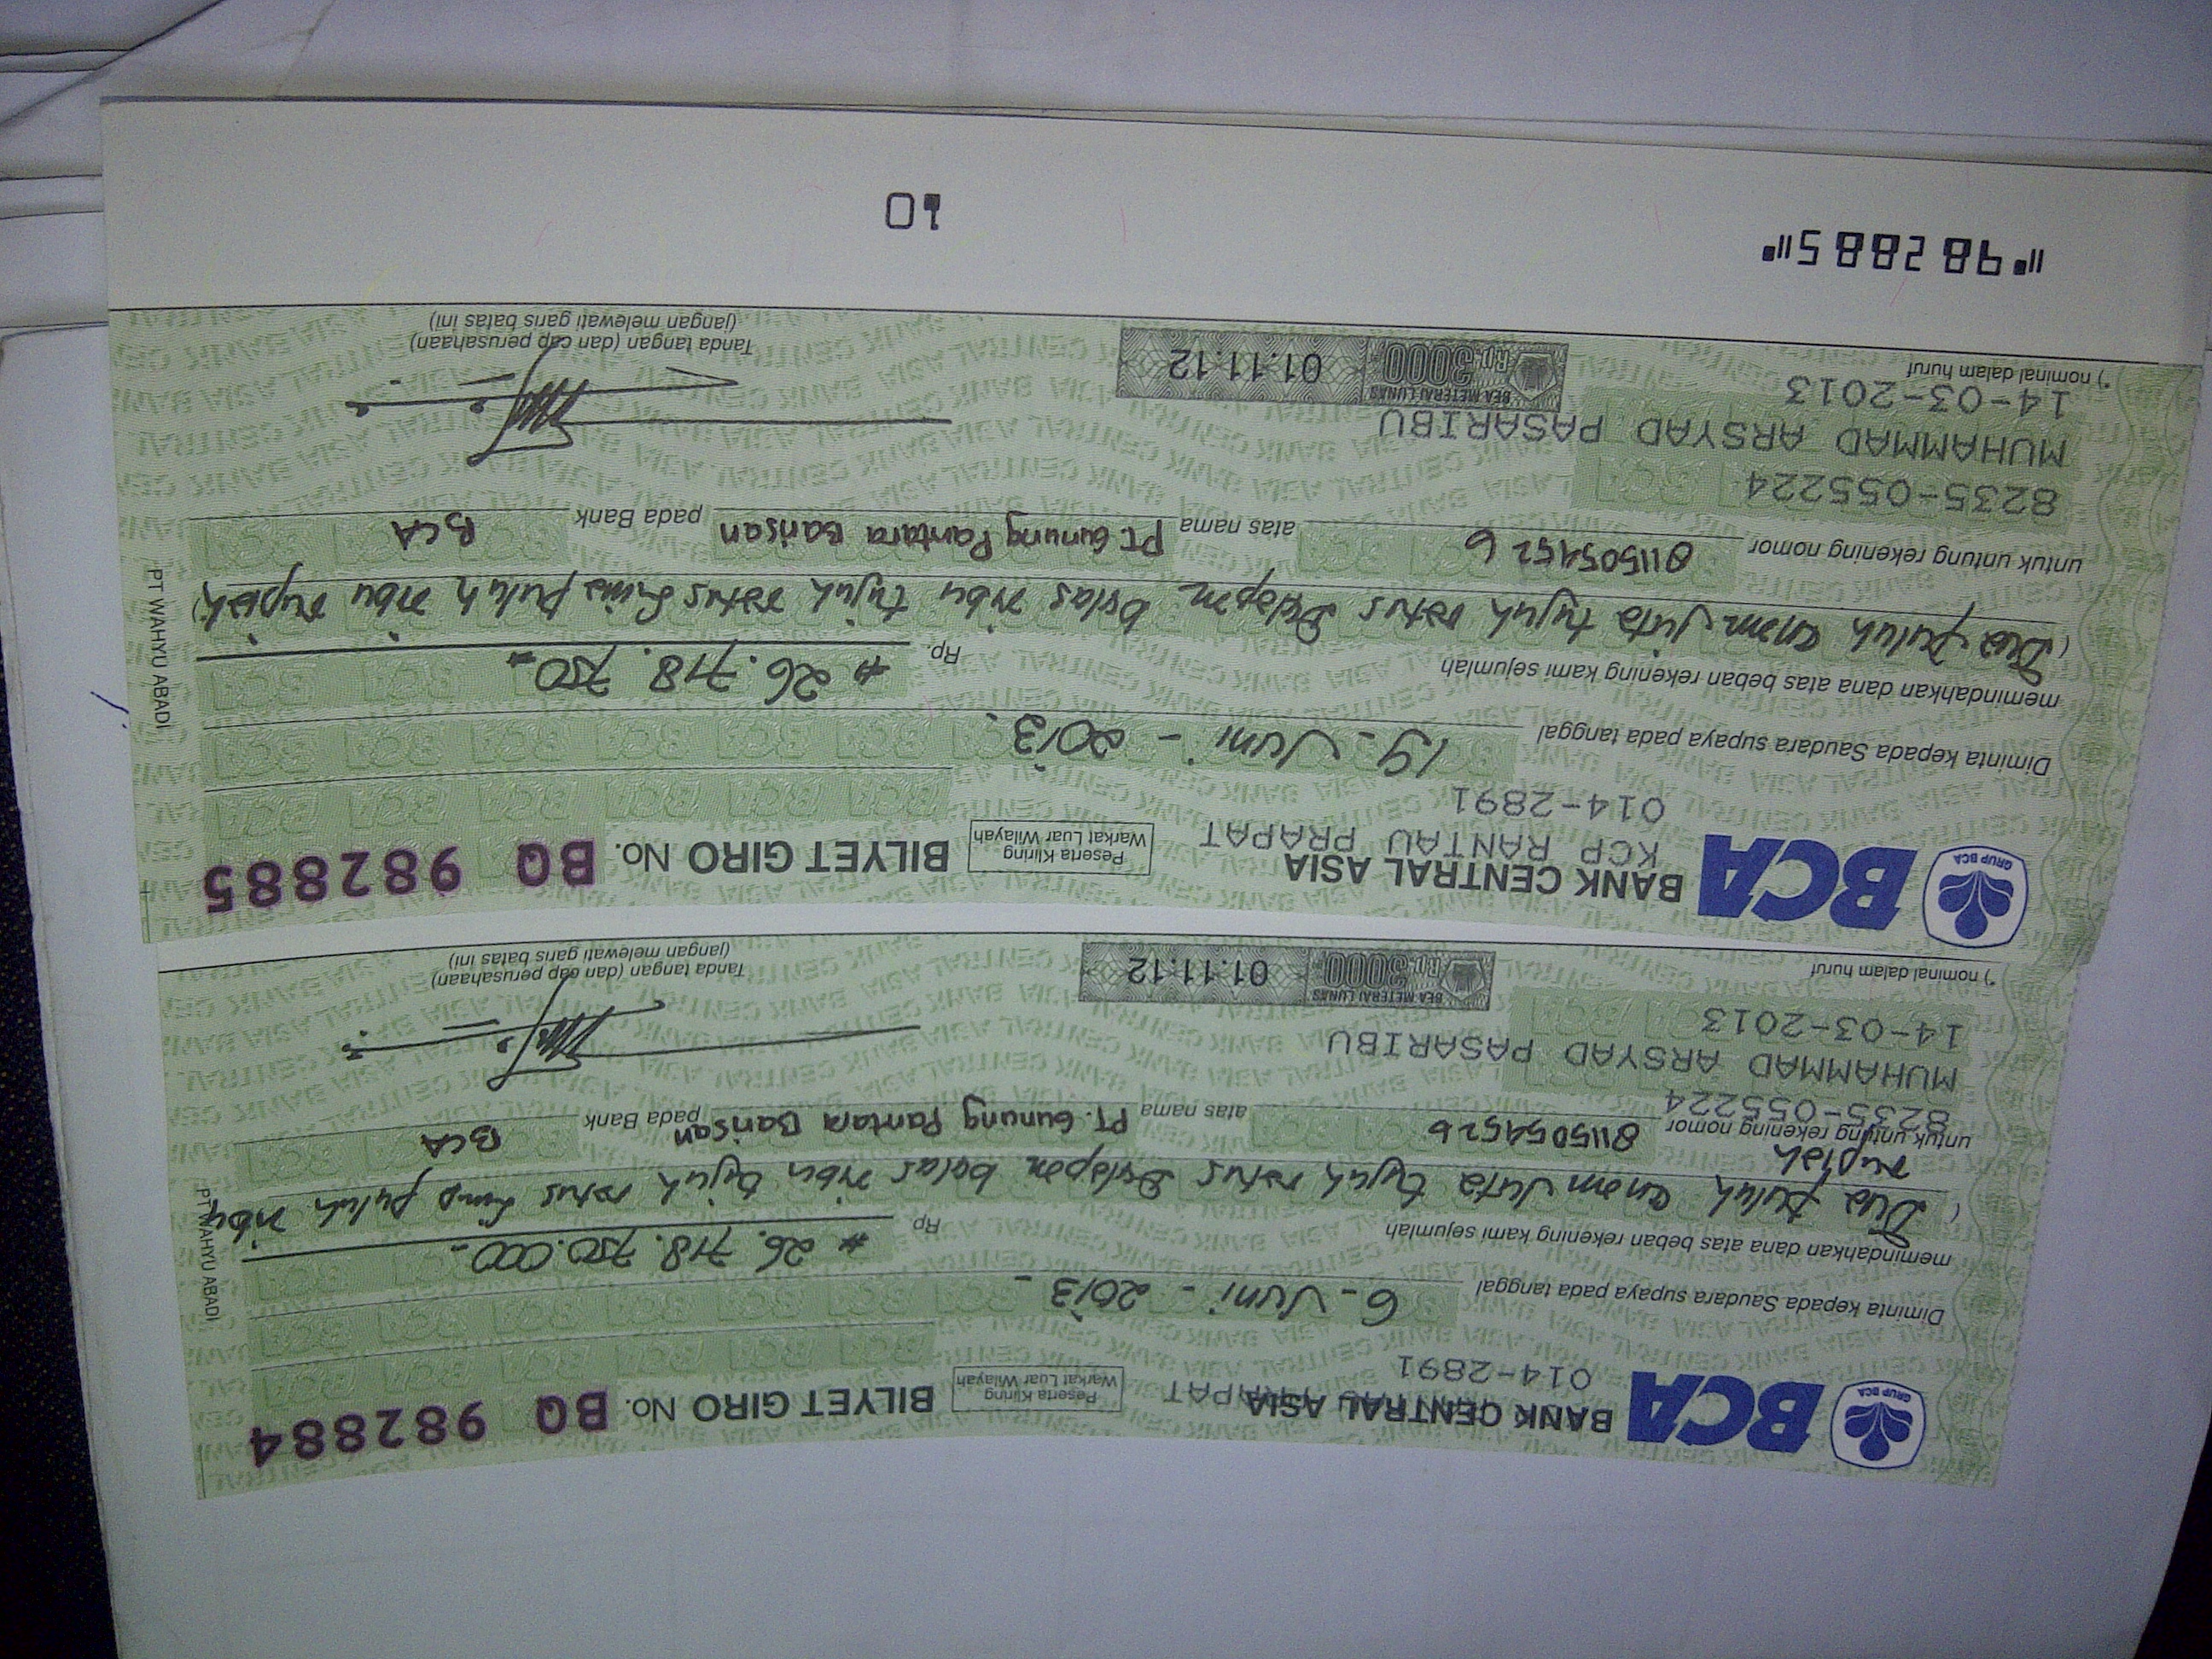 BCA BANK CENTRAL ASIA Peserta Kliring BILYET GIRO No. BQ 982884
GRUP BCA 014-2891 PRAPAT Warkat Luar Wilayah
Diminta kepada Saudara supaya pada tanggal 6 - Juni - 2013 -
memindahkan dana atas beban rekening kami sejumlah Rp. # 26.718.750.000 -
( Dua puluh enam Juta tujuh ratus Delapan belas ribu tujuh ratus Lima puluh ribu
rupiah
untuk untung rekening nomor 8115054526 atas nama PT. Gunung Pantara Barisan pada Bank BCA
8235-055224
MUHAMMAD ARSYAD PASARIBU
14-03-2013
*) nominal dalam huruf
BEA METERAI LUNAS
Rp. 3000 01.11.12
Tanda tangan (dan cap perusahaan)
(jangan melewati garis batas ini)
PT WAHYU ABADI
BCA BANK CENTRAL ASIA Peserta Kliring BILYET GIRO No. BQ 982885
GRUP BCA KCP RANTAU PRAPAT Warkat Luar Wilayah
014-2891
Diminta kepada Saudara supaya pada tanggal 19 - Juni - 2013 .
memindahkan dana atas beban rekening kami sejumlah Rp. # 26.718.750 -
( Dua puluh enam juta tujuh ratus Delapan belas ribu tujuh ratus Lima puluh ribu rupiah )
untuk untung rekening nomor 8115054526 atas nama PT. Gunung Pantara Barisan pada Bank BCA
8235-055224
MUHAMMAD ARSYAD PASARIBU
14-03-2013
*) nominal dalam huruf
BEA METERAI LUNAS
Rp. 3000 01.11.12
Tanda tangan (dan cap perusahaan)
(jangan melewati garis batas ini)
PT WAHYU ABADI
⑈982885⑈ 10